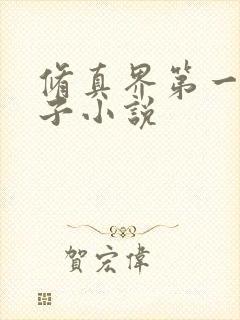 脩真界第一
子小說
賀宏偉